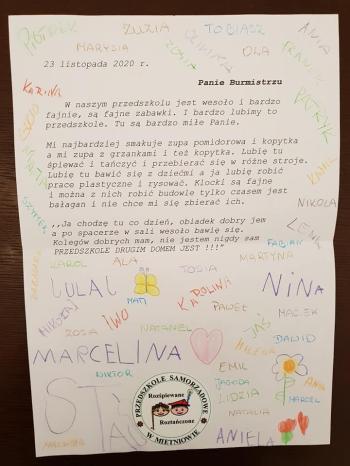 PIOTREK ZUZIA TOBIASZ ANIA
MARYSIA ZOSIA OLA
23 listopada 2020 r.
Panie Burmistrzu
KARINA
PATRYK
W naszym przedszkolu jest wesoło i bardzo
fajnie, są fajne zabawki. I bardzo lubimy to
przedszkole. Tu są bardzo miłe Panie.
Mi najbardziej smakuje zupa pomidorowa i kopytka
a mi zupa z grzankami i też kopytka. Lubię tu
śpiewać i tańczyć i przebierać się w różne stroje.
Lubię tu bawić się z dziećmi a ja lubię robić
prace plastyczne i rysować. Klocki są fajne
i można z nich robić budowle tylko czasem jest
bałagan i nie chce mi się zbierać ich.
NIKOLA
,,Ja chodzę tu co dzień, obiadek dobry jem
a po spacerze w sali wesoło bawię się.
Kolegów dobrych mam, nie jestem nigdy sam
PRZEDSZKOLE DRUGIM DOMEM JEST !!!"
LENA
FABIAN
KAROL ALA TOSIA MARTYNA
LULAL KAROLINA NINA
MATI
MIKOŁAJ PAWEŁ MACIEK
ZOSIA IWO NATANIEL JAŚ DAWID
MARCELINA MILENA
WIKTOR EMIL
JAGODA ANIA
LIDZIA MARCEL
STAŚ NATALIA
ANIELA
PRZEDSZKOLE SAMORZĄDOWE
Rozśpiewane
Roztańczone
W MIĘTNIOWIE